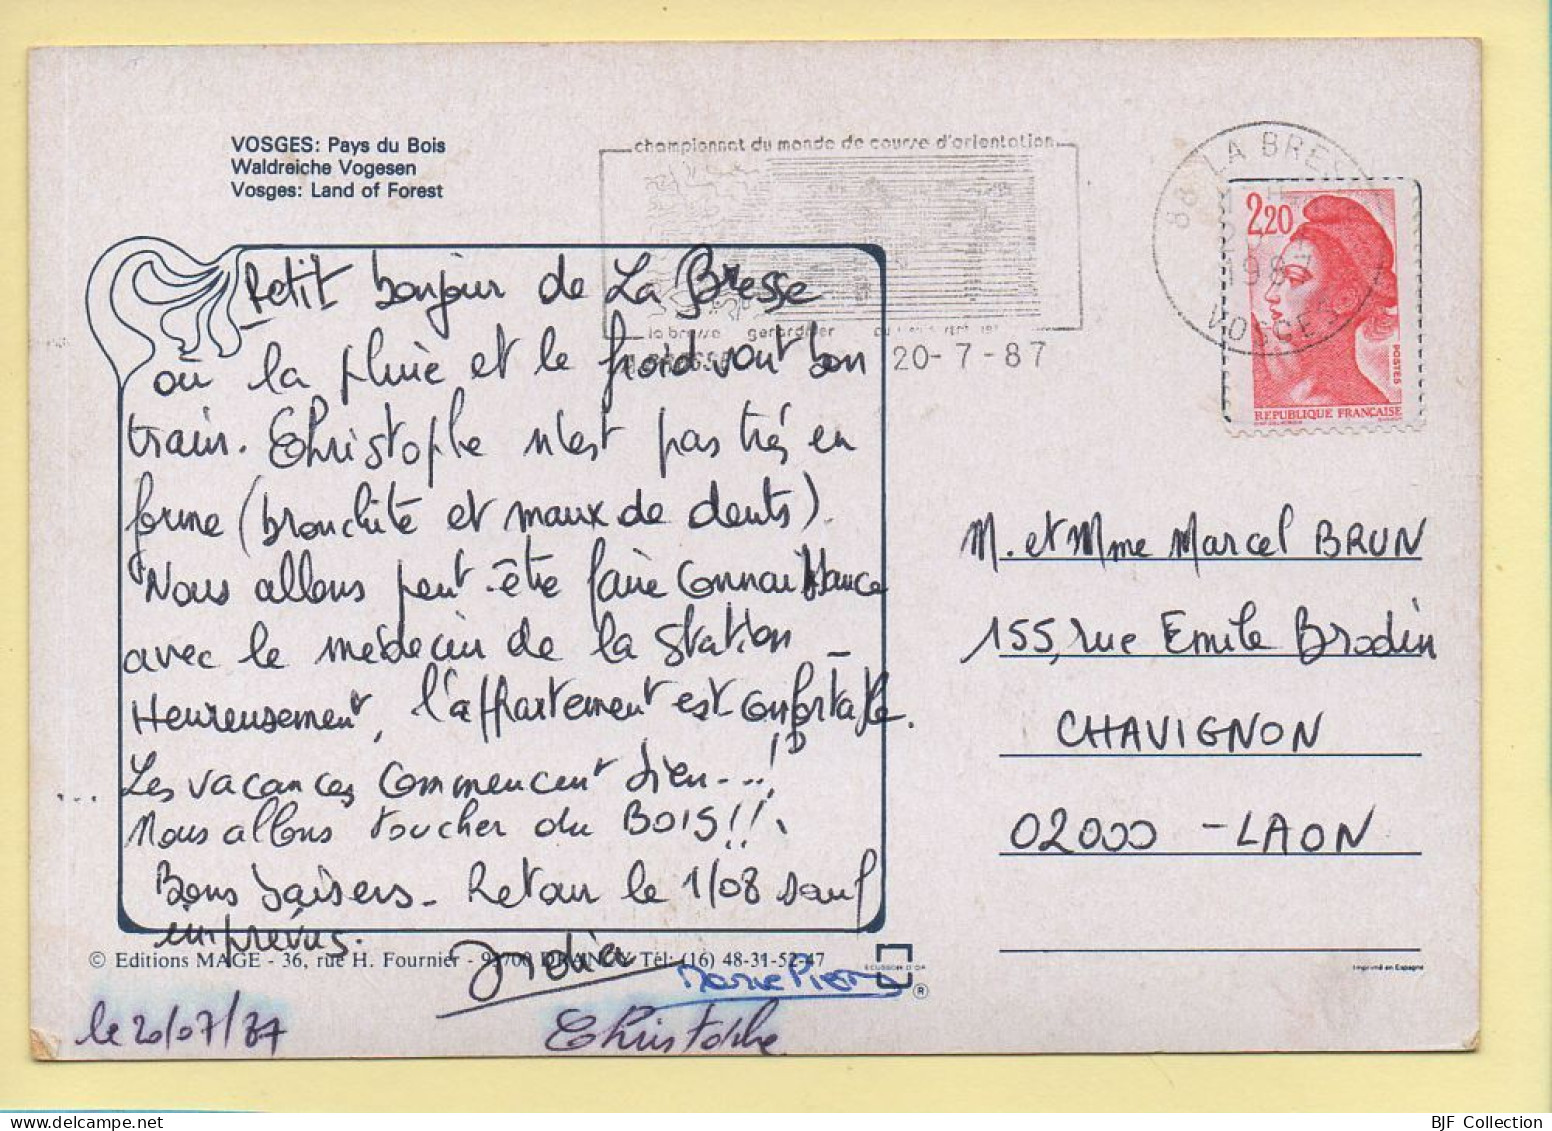 VOSGES: Pays du Bois
Waldreiche Vogesen
Vosges: Land of Forest
championnat du monde de course d'orientation
la bresse gerardmer
20-7-87
88 LA BRESSE
1987
VOSGES
2,20
POSTES
REPUBLIQUE FRANÇAISE
Petit bonjour de La Bresse
où la pluie et le froid vont bon
train. Christophe n'est pas très en
forme (bronchite et maux de dents).
Nous allons peut-être faire connaissance
avec le médecin de la station -
Heureusement, l'appartement est confortable.
Les vacances commencent bien---!
Nous allons toucher du BOIS!!
Bons baisers - Retour le 1/08 sauf
imprévus.
Marie Pierre
Christophe
le 20/07/87
M. et Mme Marcel BRUN
155, rue Emile Brodin
CHAVIGNON
02000 - LAON
© Editions MAGE - 36, rue H. Fournier - 93700 DRANCY Tél: (16) 48-31-52-47
ECUSSON D'OR
®
Imprimé en Espagne
BJF Collection